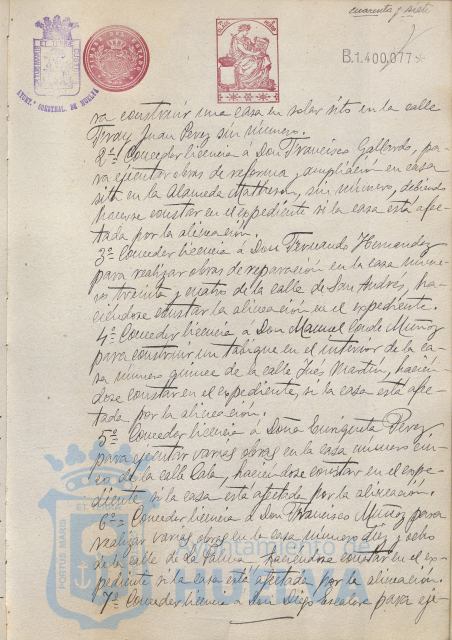 cuarenta y siete
B.1.400,077
AYUNT.º CONSTNAL. DE HUELVA
ra construir una casa en solar sito en la calle
Fray Juan Perez sin número.
2º= Conceder licencia á Don Francisco Gallardo, pa-
ra ejecutar obras de reforma y ampliación en casa
sita en la Alameda Matheson, sin número, debiendo
hacerse constar en el expediente si la casa está afec-
tada por la alineación.
3º= Conceder licencia á Don Fernando Hernandez
para realizar obras de reparación en la casa núme-
ro treinta y cuatro de la calle de San Andrés, ha-
ciendose constar la alineación en el expediente.
4º= Conceder licencia á Don Manuel Conde Muñoz
para construir un tabique en el interior de la ca-
sa número quince de la calle Ines Martin, hacien-
dose constar en el expediente, si la casa está afec-
tada por la alineación.
5º= Conceder licencia á Doña Enriqueta Perez
para ejecutar varias obras en la casa número cin-
co de la calle Cala, haciendose constar en el expe-
diente si la casa está afectada por la alineación.
6º= Conceder licencia á Don Francisco Muñoz para
realizar varias obras en la casa número diez y ocho
de la calle de La Palma, haciendose constar en el ex-
pediente si la casa está afectada por la alineación.
7º= Conceder licencia á Don Diego Escalora para eje-
PORTUS MARIS
Ayuntamiento de
HUELVA